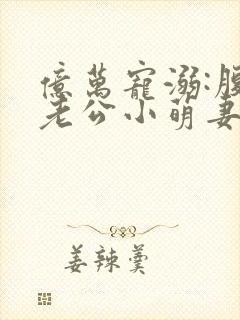 億萬寵溺:腹
老公小萌妻
姜辣羹